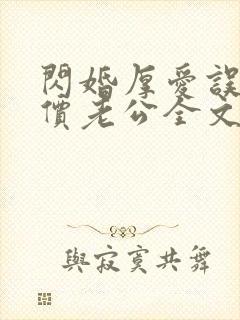 閃婚厚愛誤
價老公全文
與寂寞共舞